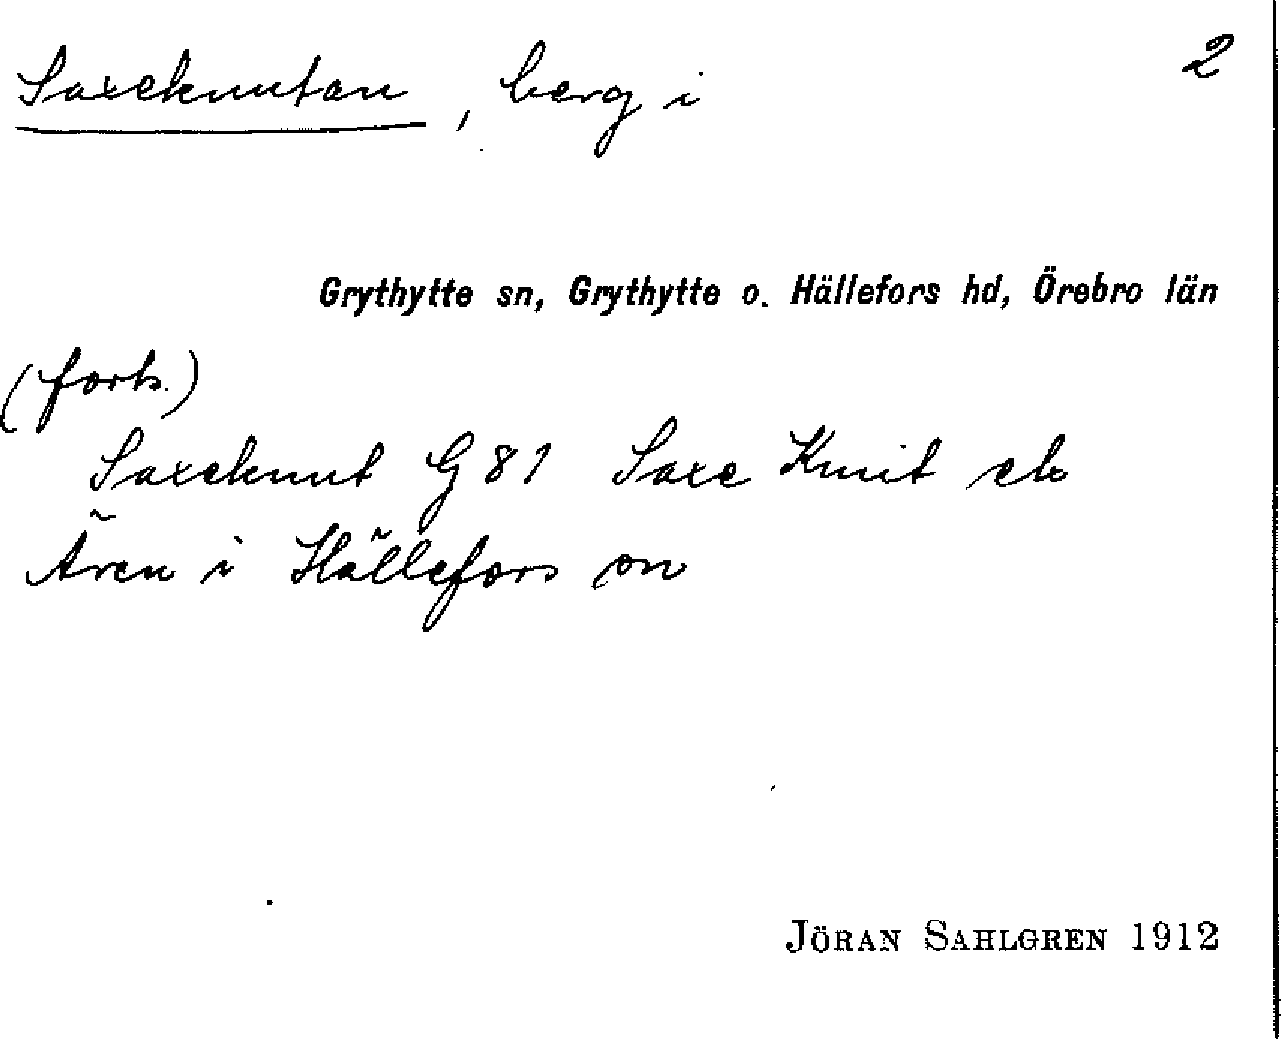 Saxeknutan, berg i 2
Grythytte sn, Grythytte o. Hällefors hd, Örebro län
(forts.)
Saxeknut G 81 Saxe Knut ek
Ären i Hällefors sn
JÖRAN SAHLGREN 1912